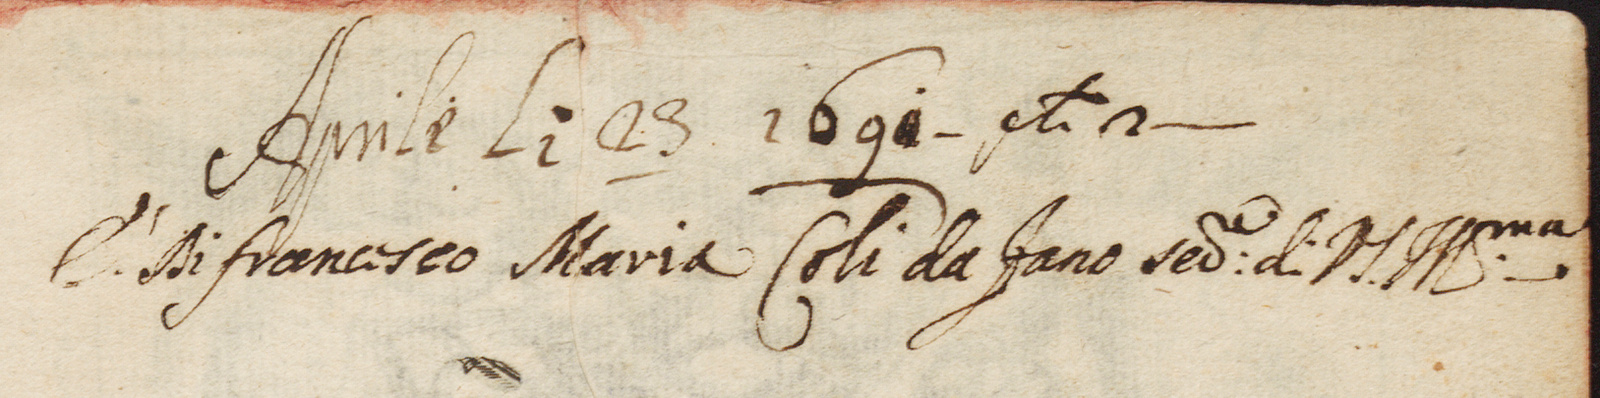 Aprile Li 23 1691 -
È di francesco Maria Coli da Fano sed.e: di V.S. Ill.ma